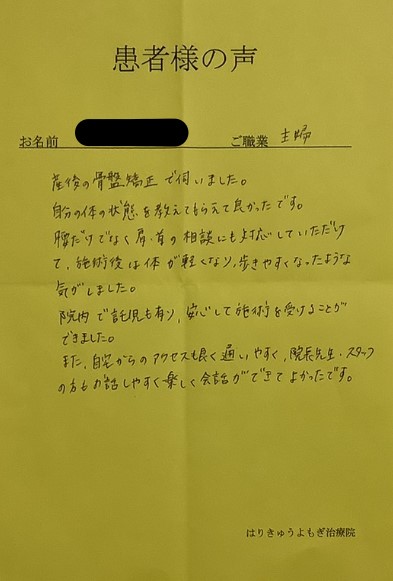 患者様の声
お名前 ご職業 主婦
産後の骨盤矯正で伺いました。
自分の体の状態を教えてもらえて良かったです。
腰だけでなく肩・首の相談にも対応していただけ
て、施術後は体が軽くなり、歩きやすくなったような
気がしました。
院内で託児も有り、安心して施術を受けることが
できました。
また、自宅からのアクセスも良く通いやすく、院長先生・スタッフ
の方もお話しやすく楽しく会話ができてよかったです。
はりきゅうよもぎ治療院